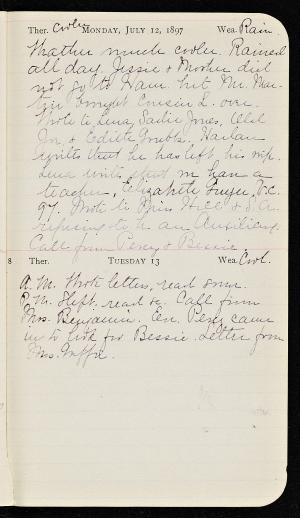 Ther. Cooler MONDAY, JULY 12, 1897 Wea. Rain.
Weather much cooler. Rained
all day. Jessie & Mother did
not go to Ham. but Mr. Mar-
tin brought Cousin L. over.
Wrote to Lena, Sadie Jones,
Jon. & Edith Grubbs. Harlan
writes that he has left his
Lena writes that
teacher, Elizabeth V.C.
97. Wrote to Miss Hill & S.A.
refusing to be an Auxiliary.
Call from Percy & Bessie.
8 Ther. TUESDAY 13 Wea. Cool.
A.M. Wrote letters, read some.
P.M. Slept, read &c. Call from
Mrs. Benjamin. Eve. Percy came
up to look for Bessie. Letter from
Mrs.